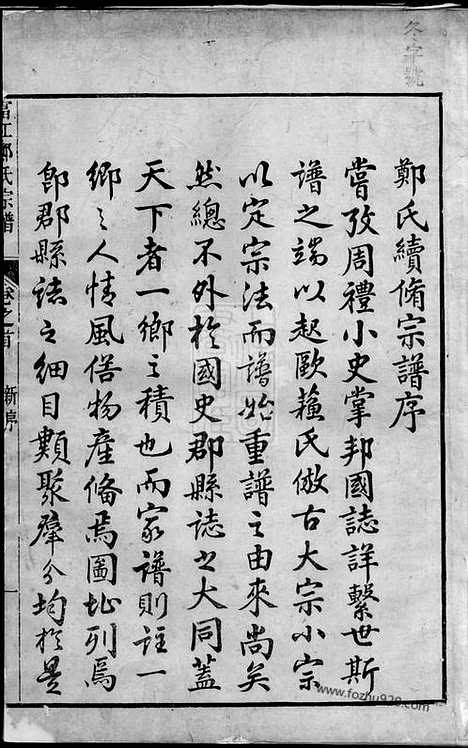 鄭氏續脩宗譜序
嘗攷周禮小史掌邦國誌詳繫世斯
譜之端以起歐蘓氏倣古大宗小宗
以定宗法而譜始重譜之由來尚矣
然總不外於國史郡縣誌之大同蓋
天下者一鄉之積也而家譜則註一
鄉之人情風俗物產俻焉圖址列焉
即郡縣誌之細目類聚羣分均於是
富江鄭氏宗譜
卷之首
新序
一
冬字號
www.fozhu920.com